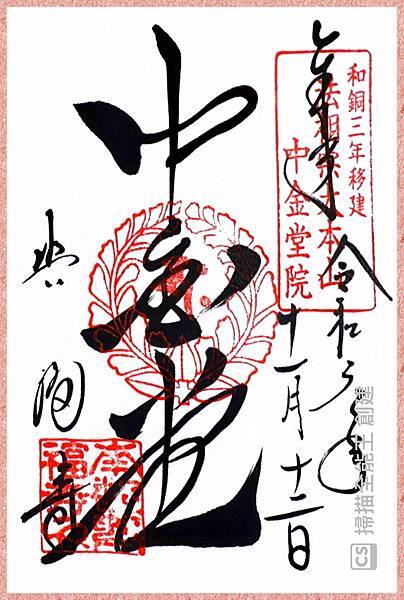 奉拝
令和元年
十一月十二日
和銅三年移建
法相宗大本山
中金堂院
中金堂
興福寺
CS 掃描全能王 創建